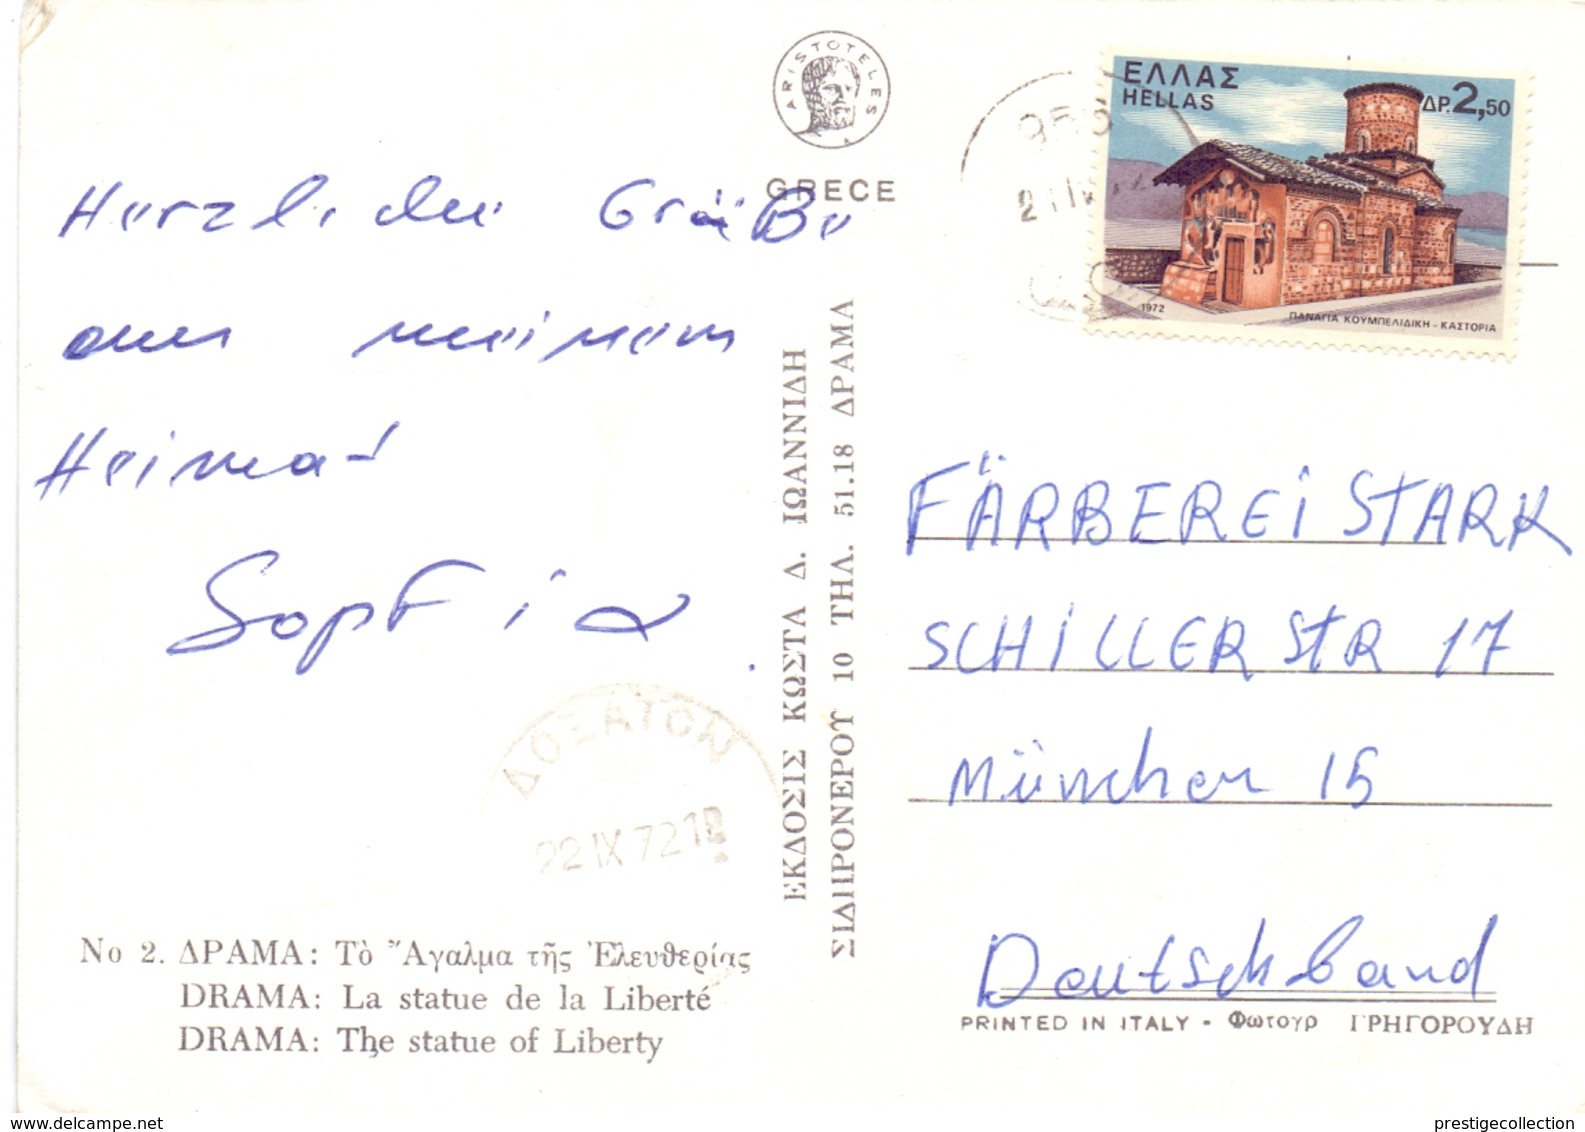 ARISTOTELES
GRECE
ΕΛΛΑΣ
HELLAS
ΔΡ. 2,50
1972
ΠΑΝΑΓΙΑ ΚΟΥΜΠΕΛΙΔΙΚΗ - ΚΑΣΤΟΡΙΑ
Herzliche Grüße
aus meinem
Heimat
Sopfia
ΔΟΞΑΤΟΝ
22 IX 72
ΕΚΔΟΣΙΣ ΚΩΣΤΑ Δ. ΙΩΑΝΝΙΔΗ
ΣΙΔΗΡΟΝΕΡΟΥ 10 ΤΗΛ. 51.18 ΔΡΑΜΑ
FÄRBEREI STARK
SCHILLER STR 17
München 15
Deutschland
No 2. ΔΡΑΜΑ: Τὸ Ἄγαλμα τῆς Ἐλευθερίας
DRAMA: La statue de la Liberté
DRAMA: The statue of Liberty
PRINTED IN ITALY - Φωτογρ ΓΡΗΓΟΡΟΥΔΗ
www.delcampe.net
prestigecollection